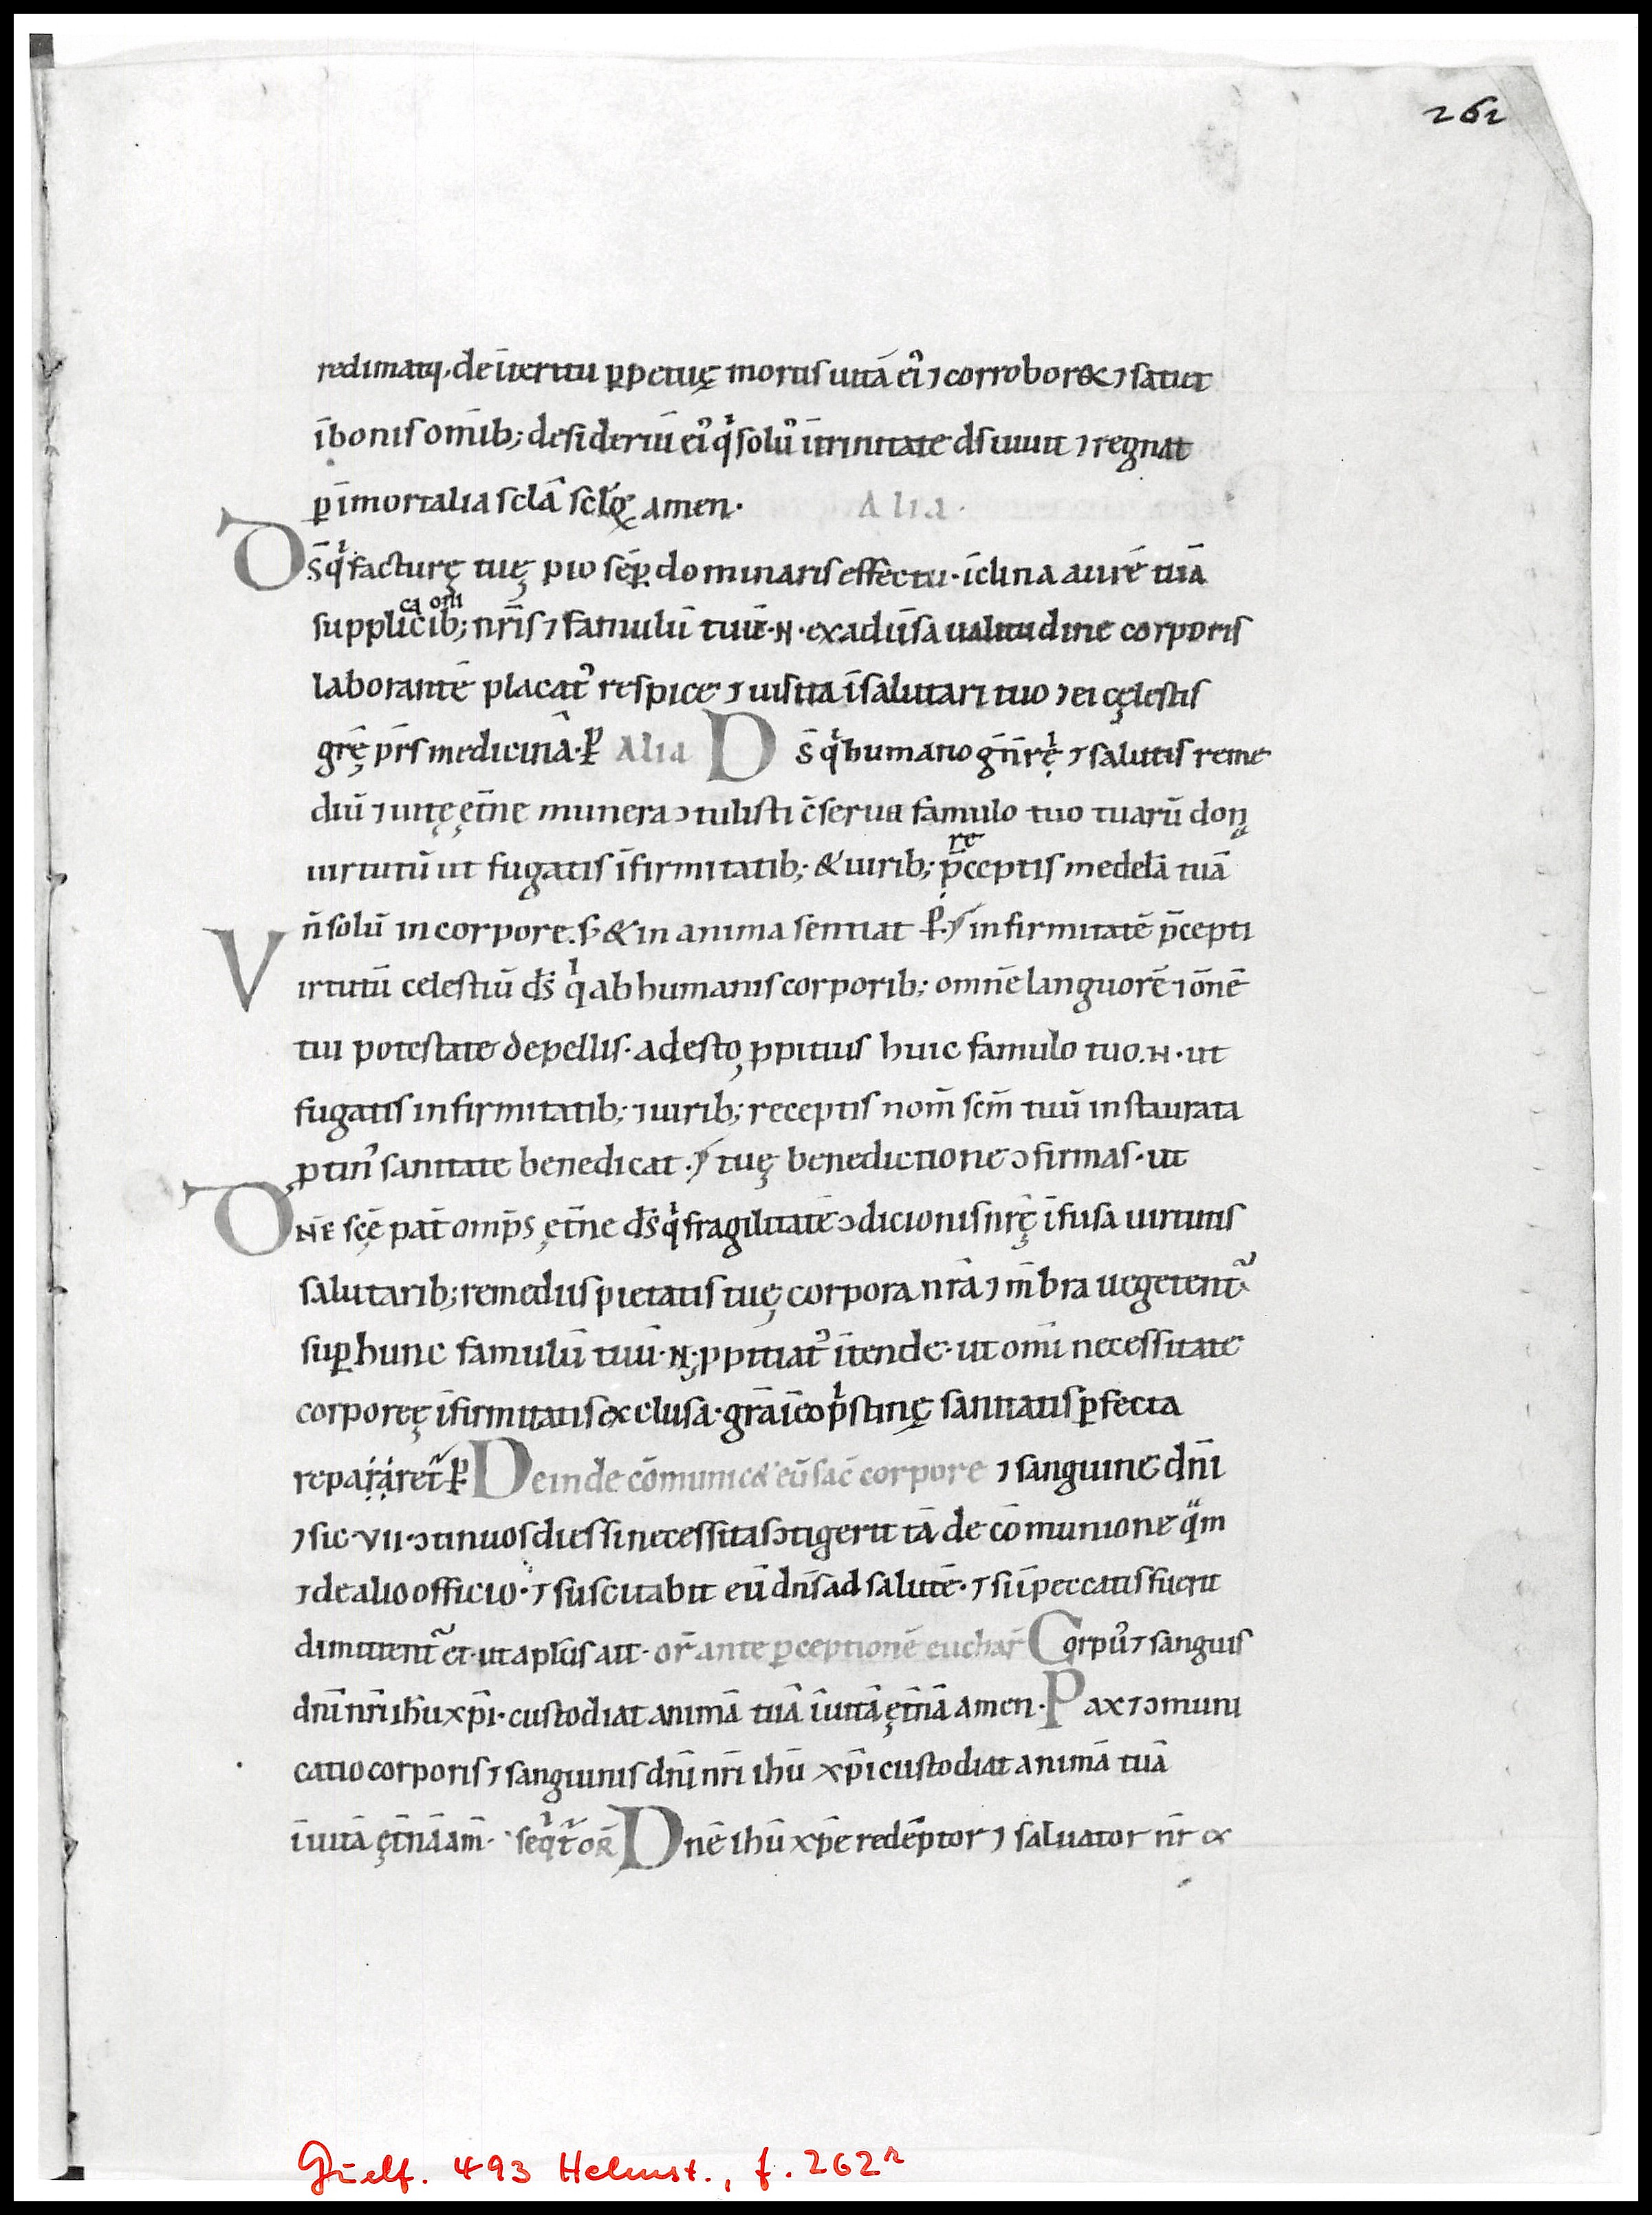 262
redimatq, de īteritu ꝑpetuę mortis uitā ei᾿ ⁊ corroboret ⁊ satiet
ī bonis om̄ib; desideriū ei᾿ qͥ solu᾿ ī trinitate ds̄ uiuit ⁊ regnat
ꝑ īmortalia sclā sclōꝝ amen. Alia.
Ds̄ qͥ facturę tuę pio sēꝑ dominaris effectu. īclina aurē tuā
supplicacioīb; nr̄is ⁊ famulū tuū .N. ex adūsa ualitudine corporis
laborantē placat᾿ respice ⁊ uisita ī salutari tuo ⁊ ei cęlestis
grę̄ pr̄s medicinā. ꝑ Alia Ds̄ qͥ humano gn̄rę ⁊ salutis reme
diū ⁊ uitę ęt̄ne munera ↄtulisti c̄serua famulo tuo tuarū dona
uirtutū ut fugatis īfirmitatib; & uirib; receptis medelā tuā
n̄ solū in corpore. s; & in anima sentiat ꝑ. infirmitatē p̄cepti
Virtutū celestiū ds̄ qͥ ab humanis corporib; omnē languorē ⁊ ōnē
tui potestate depellis. adesto ꝓpitius huic famulo tuo .N. ut
fugatis infirmitatib; ⁊ uirib; receptis nom̄ scm̄ tuū instaurata
ꝓtin᾿ sanitate benedicat. tuę benedictione ↄfirmas. ut
DNE scę̄ pat̄ omp̄s ęt̄ne ds̄ qͥ fragilitatē ↄdicionis nr̄ę īfusa uirtutis
salutarib; remediis pietatis tuę corpora nr̄a ⁊ m̄bra uegetent᾿
suꝑ hunc famulū tuū .N. ꝓpitiat᾿ ītende. ut omī necessitate
corporeę īfirmitatis exclusa. gr̄a ī eo pͥstinę sanitatis ꝑfecta
reparet᾿ ꝑ Deinde cōmunicet eū sac̄ corpore ⁊ sanguine dn̄i
⁊ sic .VII. ↄtinuos dies si necessitas ↄtigerit tā de cōmunione qͣm
⁊ de alio officio. ⁊ suscitabit eū dn̄s ad salutē. ⁊ si ī peccatis fuerit
dimittent᾿ ei. ut apl̄us ait. or̄ ante ꝑceptionē euchar̄ Corpu᾿ ⁊ sanguis
dn̄i nr̄i ihū xp̄i. custodiat animā tuā ī uitā ęt̄nā amen. Pax ⁊ ↄmuni
catio corporis ⁊ sanguinis dn̄i nr̄i ihū xp̄i custodiat animā tuā
ī uitā ęt̄nā am̄. Seqͥt᾿ OR̄ Dnē ihū xp̄e redēptor ⁊ saluator nr̄ &
Guelf. 493 Helmst., f. 262r